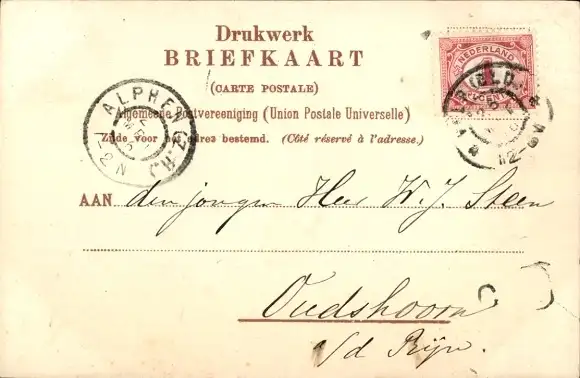 Drukwerk
BRIEFKAART
(CARTE POSTALE)
Algemeene Postvereeniging (Union Postale Universelle)
Zijde voor het adres bestemd. (Côté réservé à l'adresse.)
NEDERLAND
ALPHEN
(Z.H.)
1-2N
AAN den jongen Heer W. J. Steen
Oudshoorn
s/d Rijn.